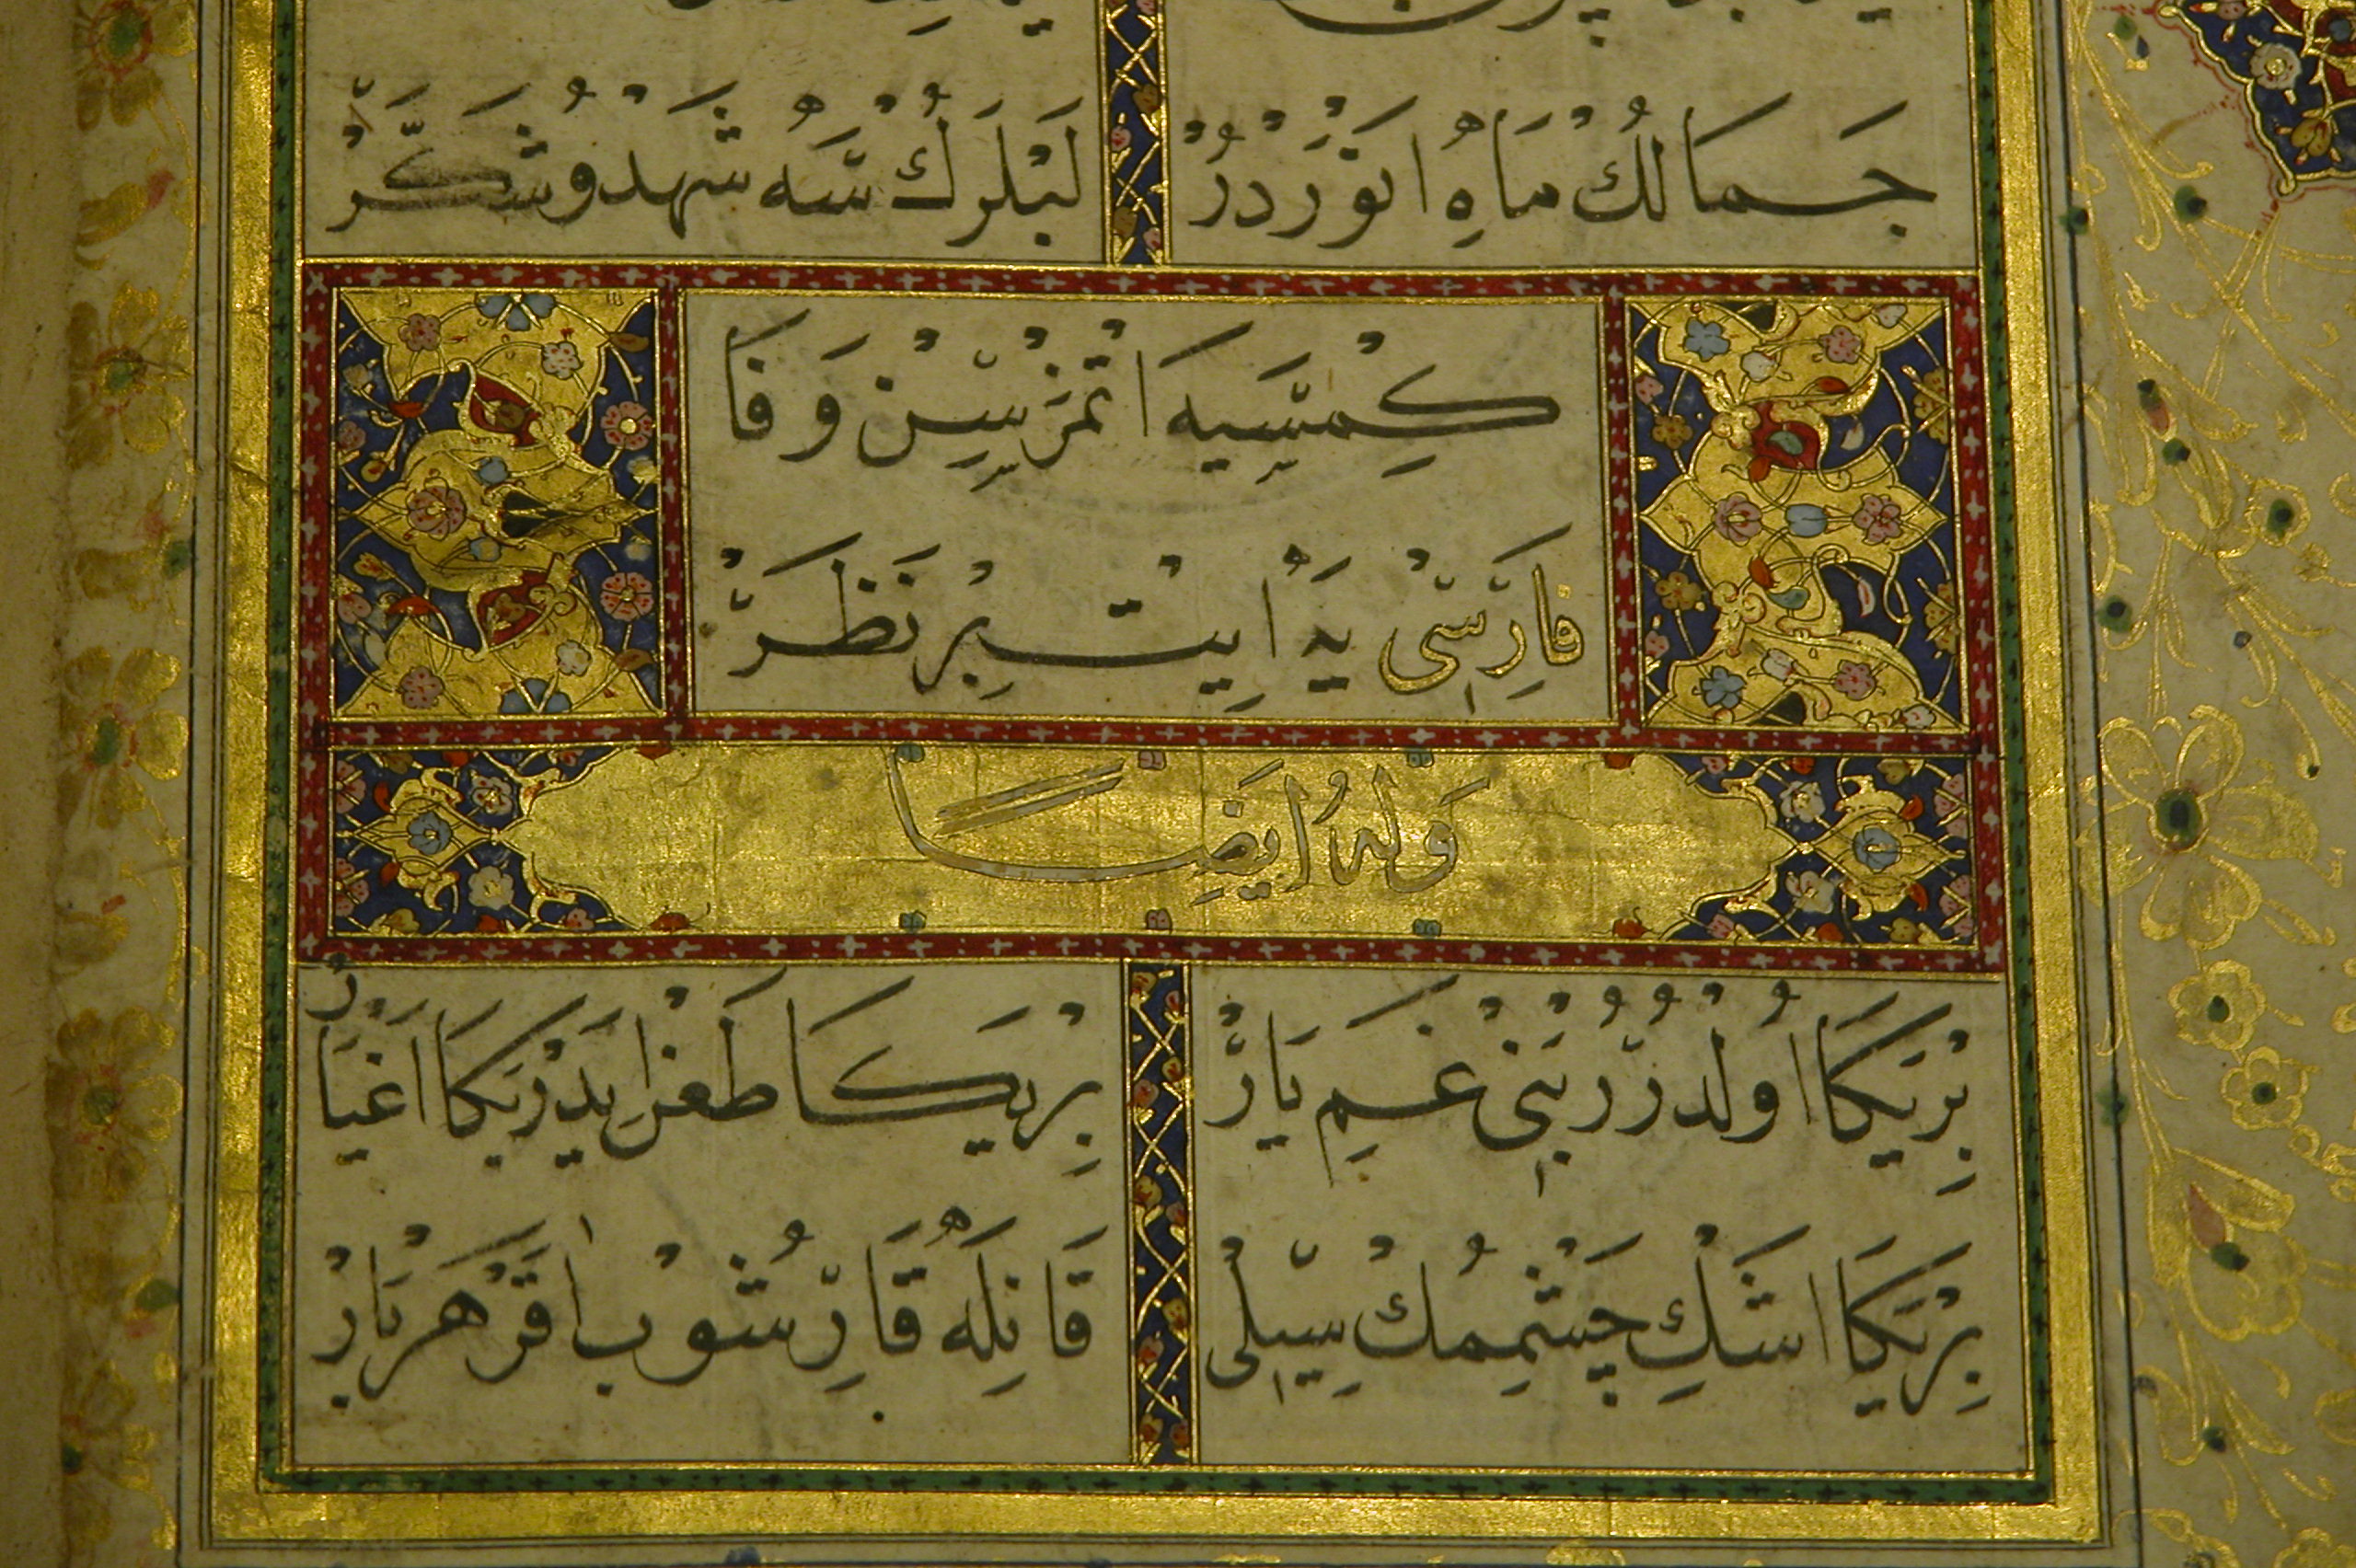 جَمَالُكْ مَاهِ اَنْوَرْدُرْ لَبْلَرُكْ سَه شَهْدُ و شَكَّرْ
كِمْسَيَه اتْمَزْسِنْ وَفَا
فَارِسِي يَه اِيتْ بِرْ نَظَرْ
وَلَهُ اَيضًا
بِرْيَكَا اُولْدُرُرْ بَنِي غَمِ يَارْ بِرْيَكَا طَعْن ايدَرْ يَكَا اَغْيَارْ
بِرْيَكَا اَشْكِ چَشْمِمُكْ سِيلِي قَانِلَه قَارِشُوبْ اقَرْ هَرْ بَارْ